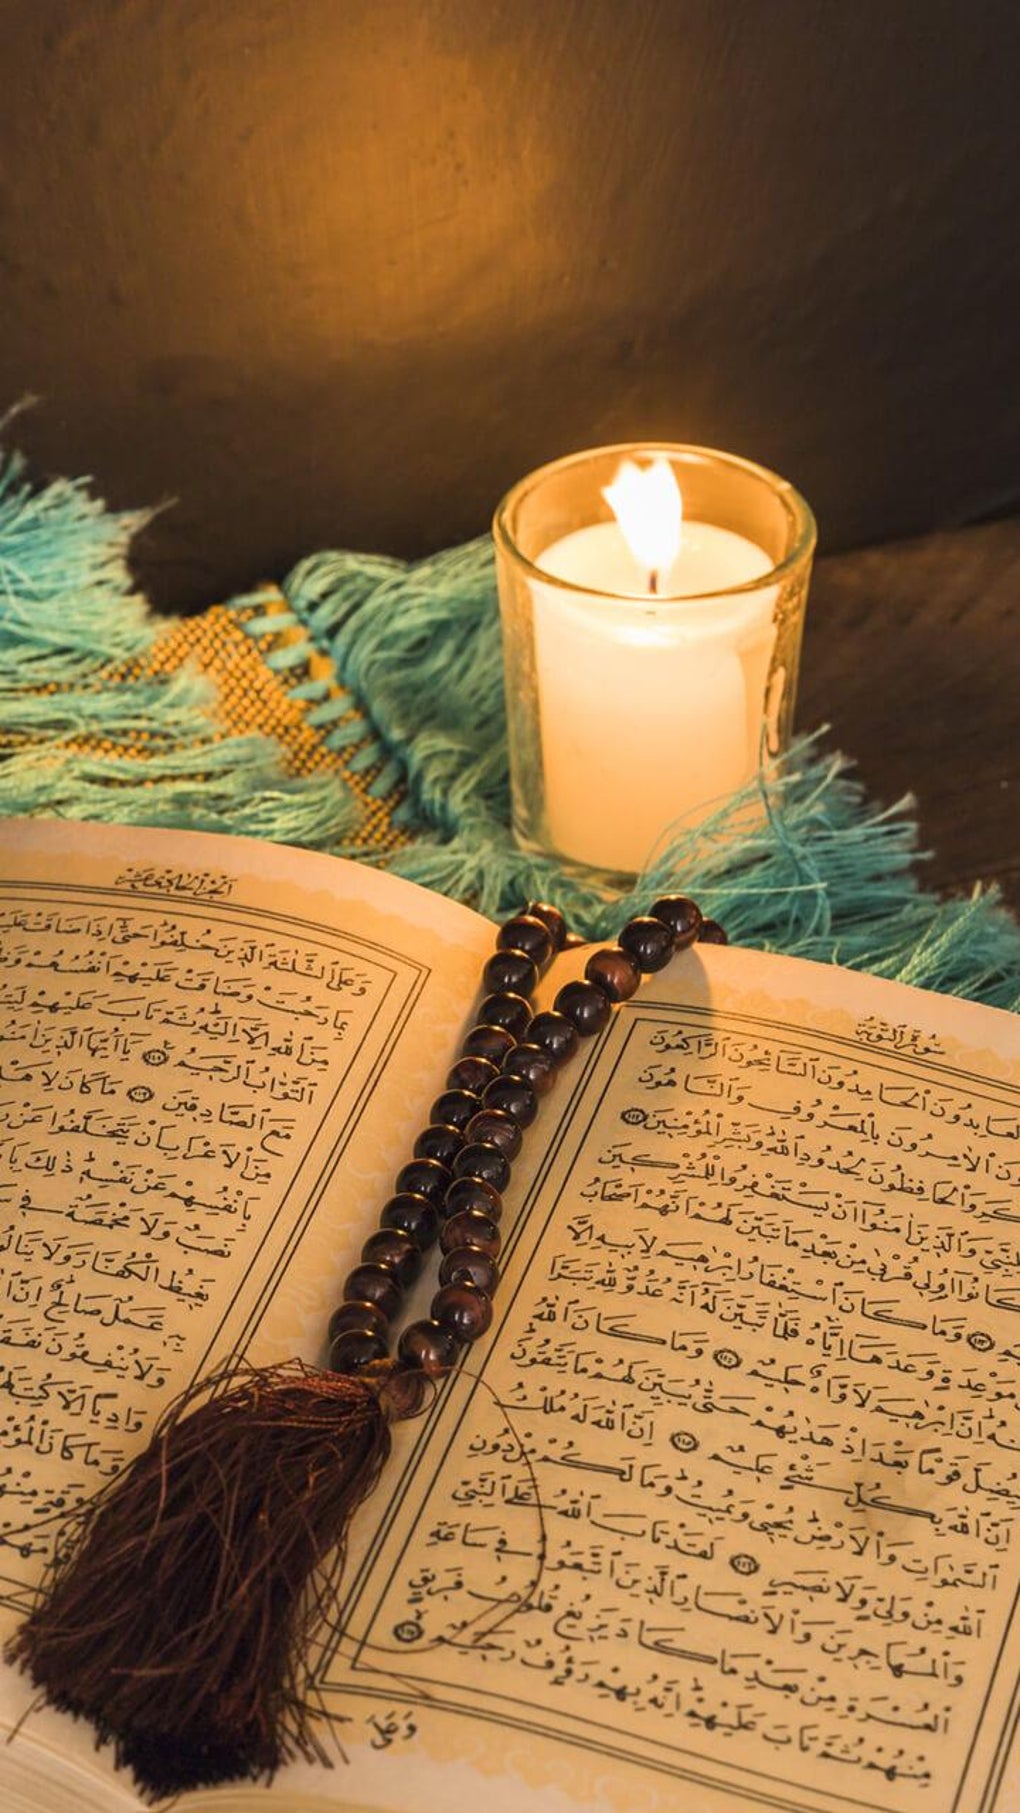 سُورَةُ التَّوْبَةِ
الْعَابِدُونَ الْحَامِدُونَ السَّائِحُونَ الرَّاكِعُونَ
الْاٰمِرُونَ بِالْمَعْرُوفِ وَالنَّاهُونَ
وَالْحَافِظُونَ لِحُدُودِ اللّٰهِ وَبَشِّرِ الْمُؤْمِنِينَ ١١٢
وَالَّذِينَ اٰمَنُوا اَنْ يَسْتَغْفِرُوا لِلْمُشْرِكِينَ
كَانُوا اُولِي قُرْبٰى مِنْ بَعْدِ مَا تَبَيَّنَ لَهُمْ اَنَّهُمْ اَصْحَابُ
١١٣ وَمَا كَانَ اسْتِغْفَارُ اِبْرٰهِيمَ لِاَبِيهِ اِلَّا
مَوْعِدَةٍ وَعَدَهَا اِيَّاهُ فَلَمَّا تَبَيَّنَ لَهُ اَنَّهُ عَدُوٌّ لِلّٰهِ تَبَرَّاَ
اِنَّ اِبْرٰهِيمَ لَاَوَّاهٌ حَلِيمٌ ١١٤ وَمَا كَانَ اللّٰهُ
لِيُضِلَّ قَوْمًا بَعْدَ اِذْ هَدٰيهُمْ حَتّٰى يُبَيِّنَ لَهُمْ مَا يَتَّقُونَ
اِنَّ اللّٰهَ بِكُلِّ شَيْءٍ عَلِيمٌ ١١٥ اِنَّ اللّٰهَ لَهُ مُلْكُ
السَّمٰوَاتِ وَالْاَرْضِ يُحْيِي وَيُمِيتُ وَمَا لَكُمْ مِنْ دُونِ
اللّٰهِ مِنْ وَلِيٍّ وَلَا نَصِيرٍ ١١٦ لَقَدْ تَابَ اللّٰهُ عَلَى النَّبِيِّ
وَالْمُهَاجِرِينَ وَالْاَنْصَارِ الَّذِينَ اتَّبَعُوهُ فِي سَاعَةِ
الْعُسْرَةِ مِنْ بَعْدِ مَا كَادَ يَزِيغُ قُلُوبُ فَرِيقٍ
مِنْهُمْ ثُمَّ تَابَ عَلَيْهِمْ اِنَّهُ بِهِمْ رَؤُفٌ رَحِيمٌ ١١٧
وَعَلَى
اَلْجُزْءُ الْحَادِي عَشَرَ
وَعَلَى الثَّلٰثَةِ الَّذِينَ خُلِّفُوا حَتّٰى اِذَا ضَاقَتْ
بِمَا رَحُبَتْ وَضَاقَتْ عَلَيْهِمْ اَنْفُسُهُمْ
مِنَ اللّٰهِ اِلَّا اِلَيْهِ ثُمَّ تَابَ عَلَيْهِمْ
التَّوَّابُ الرَّحِيمُ ١١٨ يَا اَيُّهَا الَّذِينَ اٰمَنُوا
مَعَ الصَّادِقِينَ ١١٩ مَا كَانَ لِاَهْلِ
مِنَ الْاَعْرَابِ اَنْ يَتَخَلَّفُوا عَنْ
بِاَنْفُسِهِمْ عَنْ نَفْسِهِ ذٰلِكَ
نَصَبٌ وَلَا مَخْمَصَةٌ فِي
يَغِيظُ الْكُفَّارَ وَلَا يَنَالُونَ
بِهِ عَمَلٌ صَالِحٌ اِنَّ
وَلَا يُنْفِقُونَ نَفَقَةً
وَادِيًا اِلَّا كُتِبَ
وَمَا كَانَ